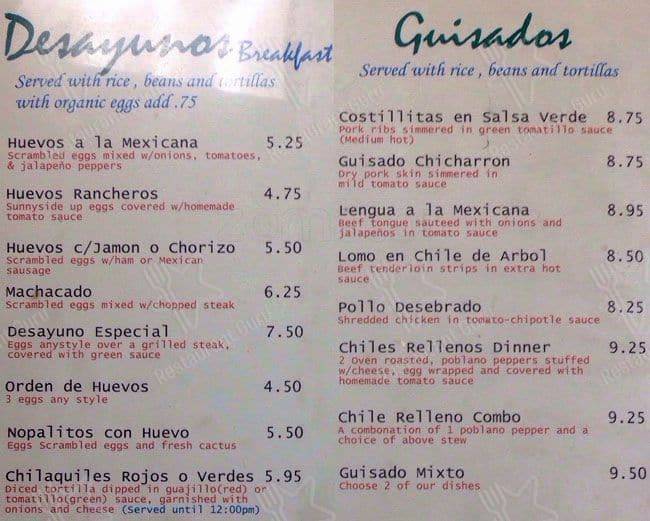 Desayunos Breakfast
Served with rice , beans and tortillas
with organic eggs add .75
Huevos a la Mexicana 5.25
Scrambled eggs mixed w/onions, tomatoes,
& jalapeño peppers
Huevos Rancheros 4.75
Sunnyside up eggs covered w/homemade
tomato sauce
Huevos c/Jamon o Chorizo 5.50
Scrambled eggs w/ham or Mexican
sausage
Machacado 6.25
Scrambled eggs mixed w/chopped steak
Desayuno Especial 7.50
Eggs anystyle over a grilled steak,
covered with green sauce
Orden de Huevos 4.50
3 eggs any style
Nopalitos con Huevo 5.50
Eggs Scrambled eggs and fresh cactus
Chilaquiles Rojos o Verdes 5.95
Diced tortilla dipped in guajillo(red) or
tomatillo(green) sauce, garnished with
onions and cheese (Served until 12:00pm)
Guisados
Served with rice , beans and tortillas
Costillitas en Salsa Verde 8.75
Pork ribs simmered in green tomatillo sauce
(Medium hot)
Guisado Chicharron 8.75
Dry pork skin simmered in
mild tomato sauce
Lengua a la Mexicana 8.95
Beef tongue sauteed with onions and
jalapeños in tomato sauce
Lomo en Chile de Arbol 8.50
Beef tenderloin strips in extra hot
sauce
Pollo Desebrado 8.25
Shredded chicken in tomato-chipotle sauce
Chiles Rellenos Dinner 9.25
2 Oven roasted, poblano peppers stuffed
w/cheese, egg wrapped and covered with
homemade tomato sauce
Chile Relleno Combo 9.25
A combonation of 1 poblano pepper and a
choice of above stew
Guisado Mixto 9.50
Choose 2 of our dishes